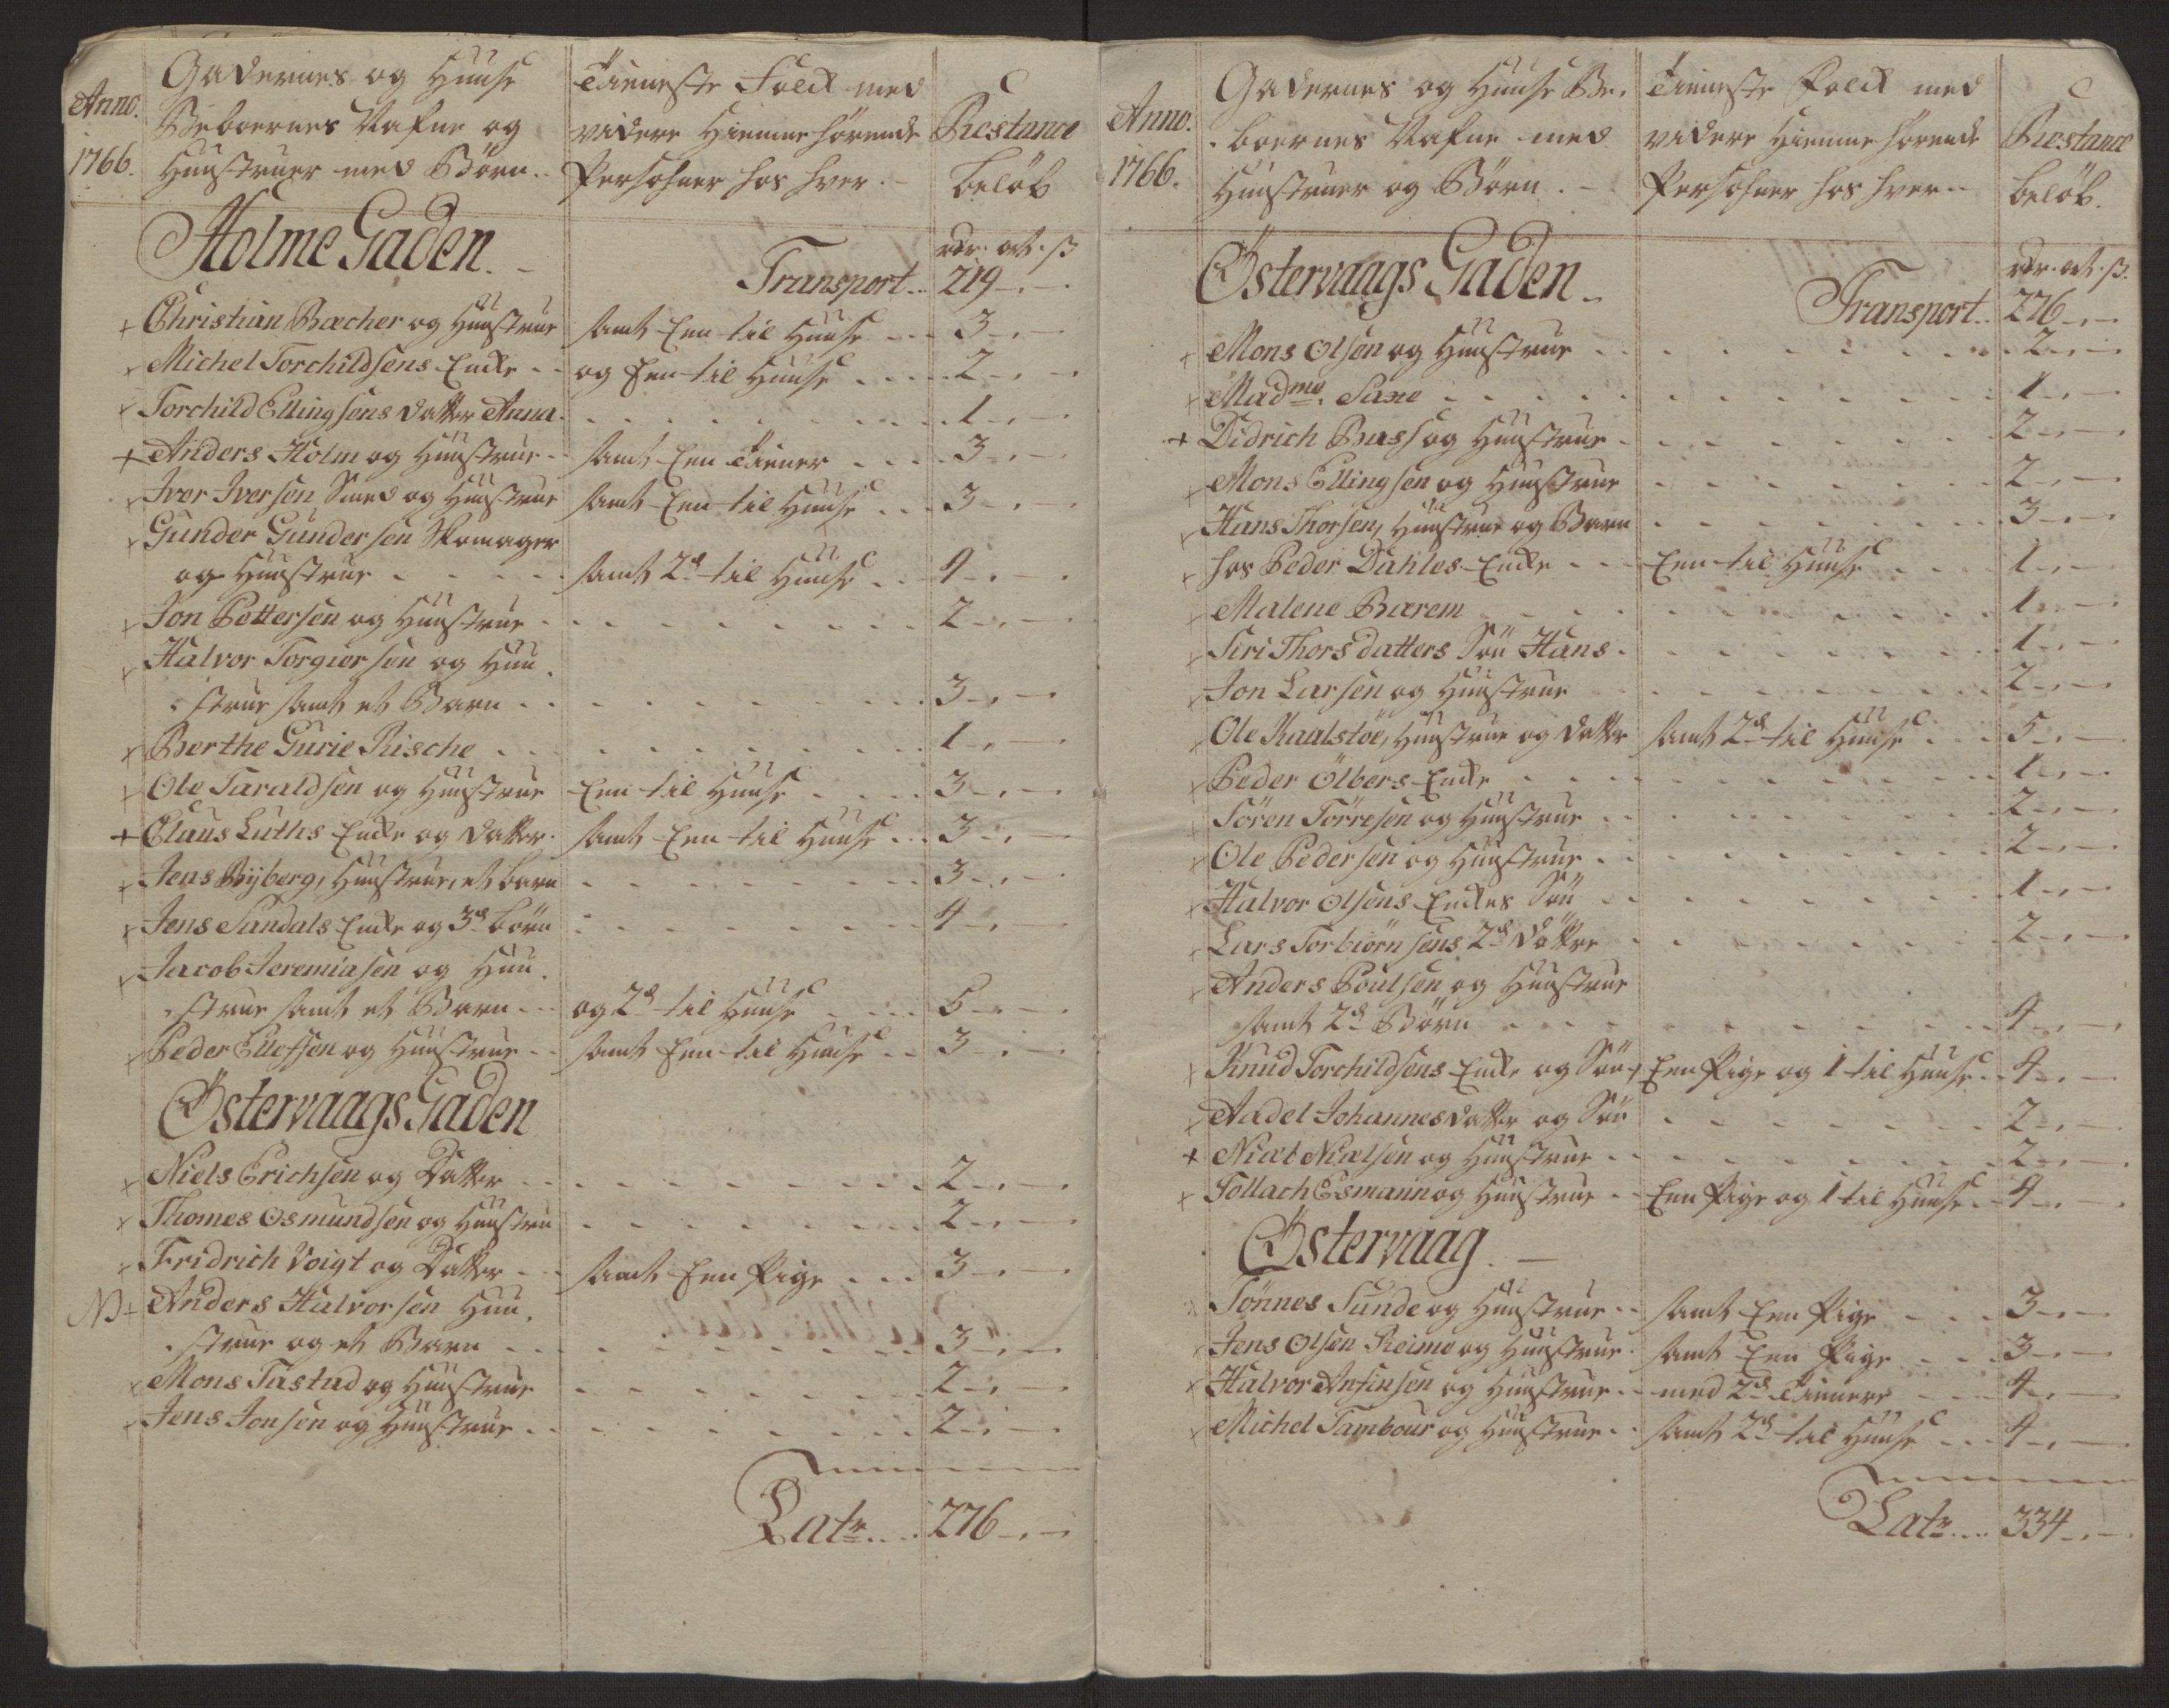 Anno.
1766.
Gadernes og Huuse
Beboernes Nafne og
Huustruer med Börn.
Tieneste Folck med
videre Hiemme hörende
Persohner hos hver.
Restance
belöb
Holme Gaden.
rdr. ort. ß
Transport.. 219 -.-
+ Christian Bæcher og Huustrue samt Een til Huuse ... 3 -.-
+ Michel Torchildsens Encke .. og Een til Huuse .... 2 -.-
+ Torchild Ellingsens datter Anna. ........ 1 -.-
+ Anders Holm og Huustrue.. samt Een Tiener ... 3 -.-
+ Iver Iversen Smed og Huustrue samt Een til Huuse ... 3 -.-
+ Gunder Gundersen Skomager
og Huustrue .... samt 2de til Huuse .. 4 -.-
+ Jon Pettersen og Huustrue ....... 2 -.-
+ Halvor Torgiersen og Huu.
strue samt et Barn ....... 3 -.-
+ Berthe Gurie Rische ....... 1 -.-
+ Ole Taraldsen og Huustrue Een til Huuse .... 3 -.-
+ Claus Luths Encke og datter. samt Een til Huuse ... 3 -.-
+ Jens Ryberg, Huustrue, et barn ....... 3 -.-
+ Jens Sandals Encke og 3de börn ....... 4 -.-
+ Jacob Jeremiasen og Huu.
strue samt et Barn ... og 2de til Huuse .... 5 -.-
+ Peder Ellefsen og Huustrue .. samt Een til Huuse .. 3 -.-
Östervaags Gaden
+ Niels Erichsen og Datter ........ 2 -.-
+ Thomes Osmundsen og Huustru ....... 2 -.-
+ Fridrich Voigt og Datter ... samt Een Pige ... 3 -.-
NB + Anders Halvorsen Huu.
strue og et Barn ........ 3 -.-
+ Mons Tastad og Huustrue ....... 2 -.-
+ Jens Jonsen og Huustrue ........ 2 -.-
Latr.... 276 -.-
Anno.
1766.
Gadernes og Huuse Be.
boernes Nafne med
Huustruer og Börn. -
Tieneste Folck med
videre Hiemme hörende
Persohner hos hver..
Restance
belöb.
Östervaags Gaden.
rdr. ort. ß.
Transport.. 276 -.-
+ Mons Olsen og Huustrue ........ 2 -.-
+ Madme. Saxe ......... 1 -.-
+ Didrich Bass og Huustrue ....... 2 -.-
+ Mons Ellingsen og Huustrue ....... 2 -.-
+ Hans Thorsen, Huustrue og Barn ....... 3 -.-
+ hos Peder Dahles Encke ... Een til Huuse .... 1 -.-
+ Malene Barem ........ 1 -.-
+ Siri Thorsdatters Sön Hans ....... 1 -.-
+ Jon Larsen og Huustrue ....... 2 -.-
+ Ole Kaalstöe, Huustrue og datter samt 2de til Huuse ... 5 -.-
+ Peder Ölbers Encke ........ 1 -.-
+ Sören Törresen og Huustrue ....... 2 -.-
+ Ole Pedersen og Huustrue ....... 2 -.-
+ Halvor Olsens Enckes Sön ....... 1 -.-
+ Lars Torbiörnsens 2de döttre ....... 2 -.-
+ Anders Poulsen og Huustrue
samt 2de Börn ........ 4 -.-
+ Knud Torchildsens Encke og Sön, Een Pige og 1 til Huuse .. 4 -.-
+ Aadel Johannesdatter og Sön ....... 2 -.-
+ Niæl Niælsen og Huustrue ....... 2 -.-
+ Tollach Esmann og Huustrue .. Een Pige og 1 til Huuse .. 4 -.-
Östervaag. -
+ Tönnes Sunde og Huustrue .. samt Een Pige .... 3 -.-
+ Jens Olsen Reime og Huustrue. samt Een Pige ... 3 -.-
+ Halvor Anfinsen og Huustrue .. med 2de Tienere ... 4 -.-
+ Michel Tambour og Huustrue .. samt 2de til Huuse ... 4 -.-
Latr.... 334 -.-